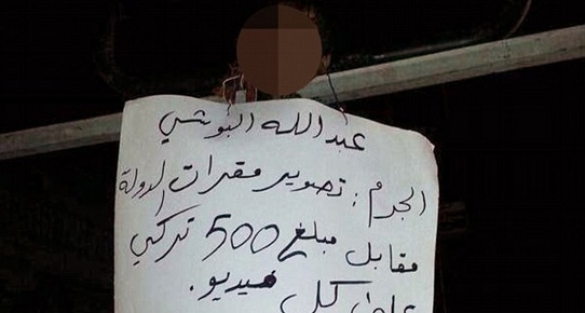 عبدالله البوشي
الجرم: تصوير مقرات الدولة
مقابل مبلغ 500 تركي
على كل فيديو.